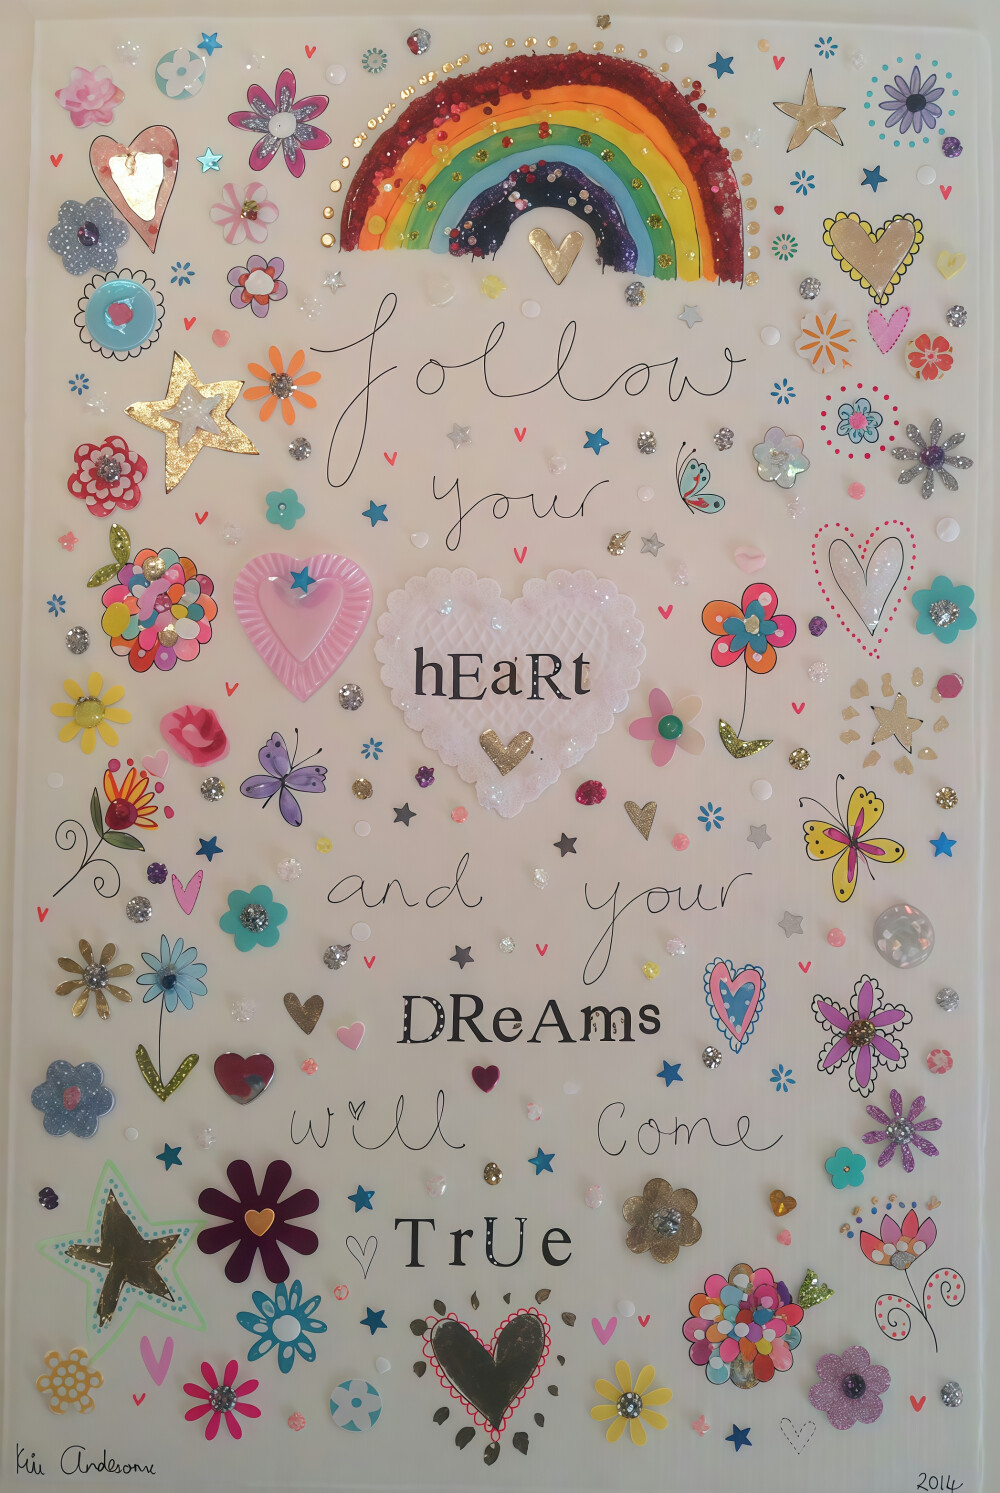 follow
your
hEaRt
and your
DReAms
will come
TrUe
2014